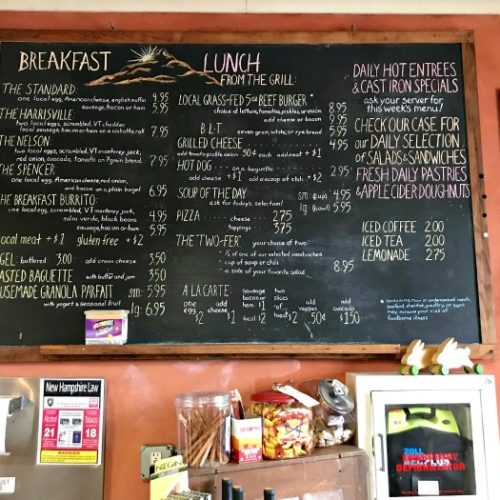 BREAKFAST
THE STANDARD:
one local egg, American cheese, english muffin 4.95
sausage, bacon or ham 5.95
THE HARRISVILLE
two local eggs, scrambled, VT. cheddar,
local sausage, bacon or ham on a bulkie roll 7.95
THE NELSON:
two local eggs, scrambled, VT monterey jack,
red onion, avocado, tomato on 7-grain Bread 7.95
THE SPENCER
one local egg, American cheese, red onion,
and bacon on a plain bagel 6.95
HE BREAKFAST BURRITO:
one local egg, scrambled, VT monterey jack,
salsa verde, black beans 4.95
sausage, bacon or ham 5.95
ocal meat +$1 gluten free +$2
GEL: buttered 3.00 add cream cheese 3.50
ASTED BAGUETTE with butter and jam 3.50
USEMADE GRANOLA PARFAIT sm: 5.95
with yogurt & seasonal fruit lg: 6.95
LUNCH
FROM THE GRILL:
LOCAL GRASS-FED 5oz BEEF BURGER 8.95
choice of lettuce, tomato, pickles, or onion
add cheese or bacon .95
B-L-T 5.95
seven grain, white, or rye bread
GRILLED CHEESE 4.95
add tomato, raffle onion 50¢ each add meat +$1
HOT DOG on a bagel 2.95
add cheese +$1 add scoop of chili +$2
SOUP OF THE DAY sm (cup) 4.95
ask for today's selection! lg (bowl) 5.95
PIZZA cheese 2.75
toppings 3.75
THE "TWO-FER" your choice of two:
- ½ if one of our selected sandwiches
- cup of soup or chili
- a side of your favorite salad 8.95
A LA CARTE:
one egg $2
add cheese $1
sausage bacon ham $1 local $2
two slices of toast $2
add veggies 50¢
add avocado $1.50
DAILY HOT ENTREES
& CAST IRON SPECIALS
ask your server for
this week's menu!
CHECK OUR CASE FOR
our DAILY SELECTION
of SALADS & SANDWICHES
FRESH DAILY PASTRIES
& APPLE CIDER DOUGHNUTS
ICED COFFEE 2.00
ICED TEA 2.00
LEMONADE 2.75
* Consuming raw or undercooked meats,
seafood, shellfish, poultry, or eggs
may increase your risk of
foodborne illness
New Hampshire Law
Alcohol 21
Tobacco 18
WARNING
NEGIN
ZOLL
AED PLUS
DEFIBRILLATOR